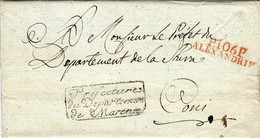 A Monsieur le Préfet du
P.106.P.
ALEXANDRIE
Département de la Stura
Préfecture
du Département
de Marengo
Coni